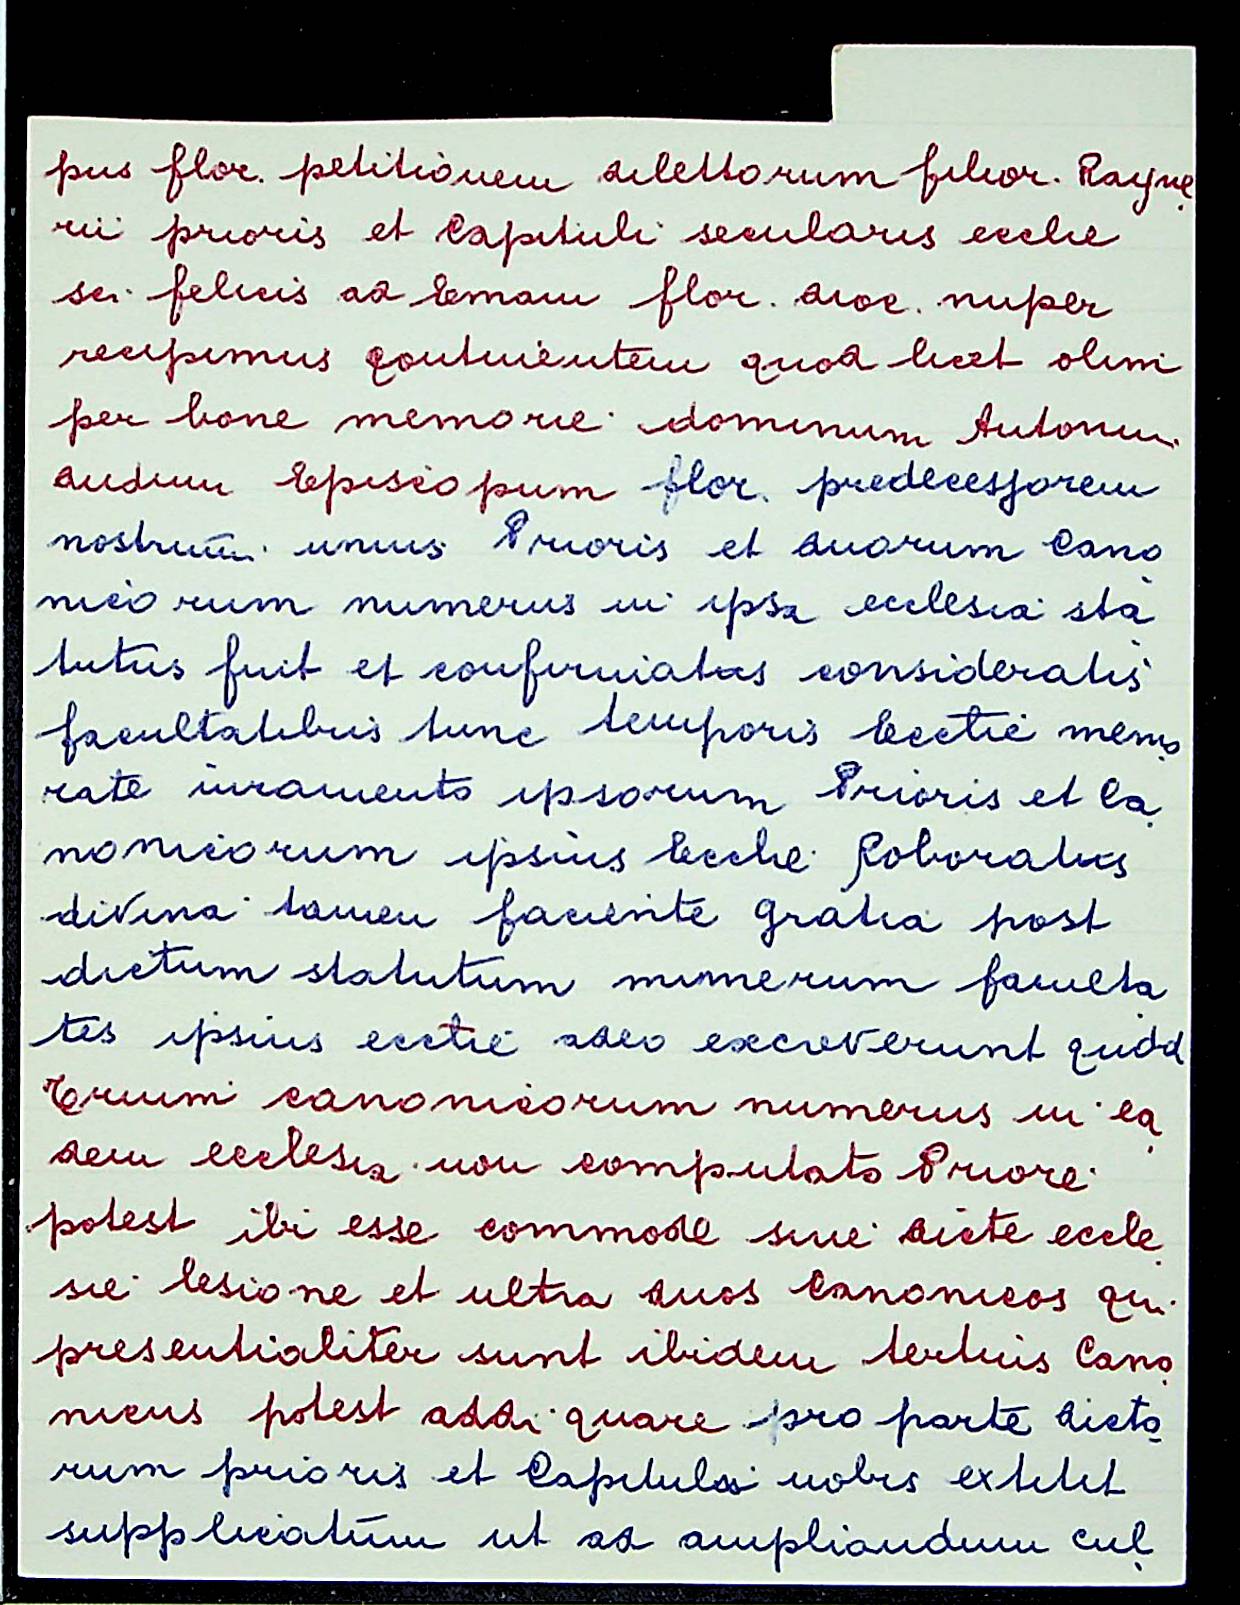 pus flor. petitionem dilettorum filior. Rayne
rii prioris et Capituli secularis ecclie
sci. felicis ad Emam flor. dioc. nuper
recepimus continentem quod licet olim
per bone memorie dominum Antonium.
dudum Episcopum flor. predecessorem
nostrum. unius Prioris et duorum Cano
nicorum numerus in ipsa ecclesia sta
tutus fuit et confirmatus consideratis
facultatibus tunc temporis Ecctie memo
rate iuramento ipsorum Prioris et Ca
nonicorum ipsius Ecclie Roboratus
divina tamen faciente gratia post
dictum statutum numerum faculta
tes ipsius ecctie adeo excreverunt quod
Trium canonicorum numerus in ea
dem ecclesia non computato Priore
potest ibi esse commode sine dicte eccle
sie lesione et ultra duos Canonicos qui
presentialiter sunt ibidem tertius Cano
nicus potest addi quare pro parte dicto
rum prioris et Capituli nobis extitit
supplicatum ut ad ampliandum cul